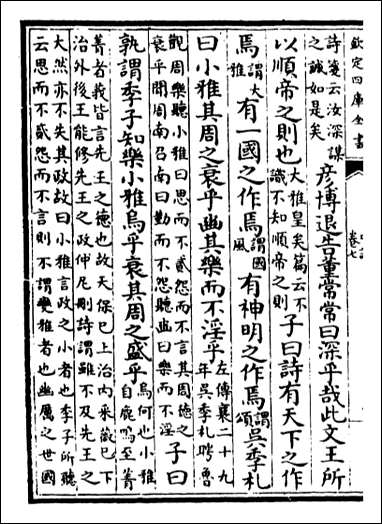 欽定四庫全書
卷七
詩箋云汝深謀
之誠如是矣
彥博退告董常常曰深乎哉此文王所
以順帝之則也
大雅皇矣篇云不
識不知順帝之則
子曰詩有天下之作
焉
謂大
雅
有一國之作焉
謂國
風
有神明之作焉
謂
頌
吳季札
曰小雅其周之衰乎豳其樂而不淫乎
左傳襄二十九
年吳季札聘魯
觀周樂聽小雅曰思而不貳怨而不言其周德之
衰乎聞周南召南曰勤而不怨聽豳曰樂而不淫
子曰
孰謂季子知樂小雅烏乎衰其周之盛乎
烏何也小雅
自鹿鳴至菁
菁者莪皆言先王之德也故天保已上治內采薇已下
治外後王能修先王之政仲尼刪詩謂雖不及先王之
大然亦不失其政故曰小雅言政之小者也季子所聽
云思而不貳怨而不言則不謂變雅者也幽厲之世國